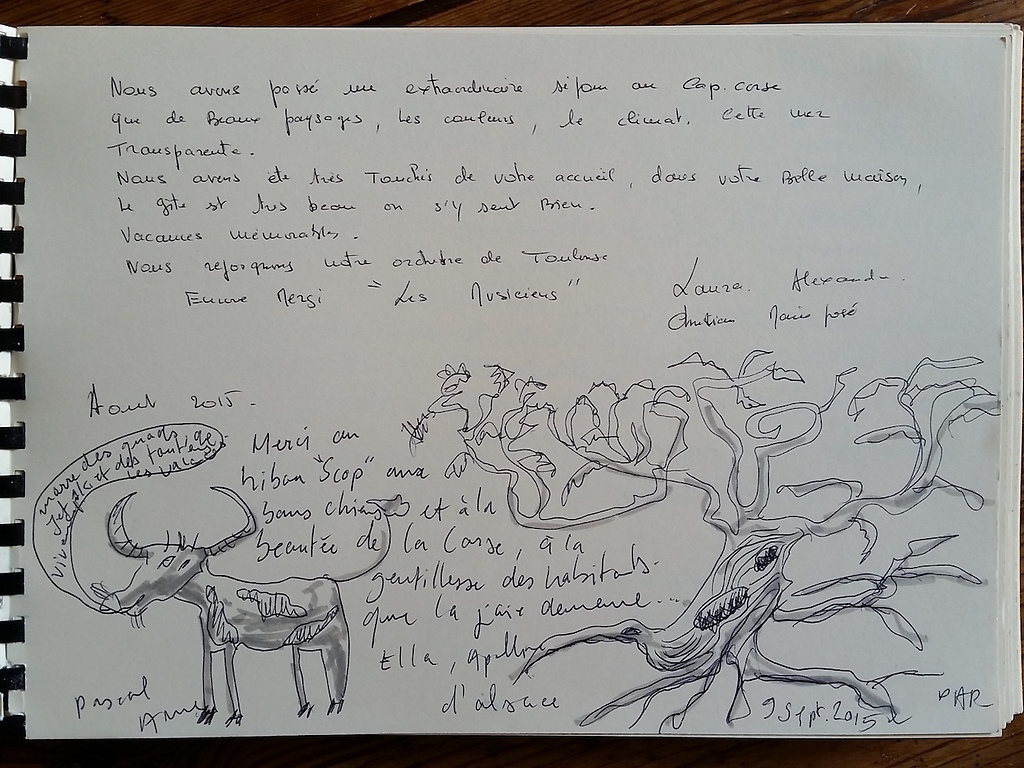 Nous avons passé un extraordinaire séjour au Cap. corse
que de Beaux paysages, les couleurs, le climat. Cette mer
Transparente.
Nous avons été très Touchés de votre accueil, dans votre Belle maison,
Le gîte est très beau on s'y sent Bien.
Vacances mémorables.
Nous rejoignons notre orchestre de Toulouse
Encore Merçi "Les Musiciens"
Laura. Alexandre.
Christian Marie josé
Aout 2015.
marre des quads
jet ski et des
Vive les vaches
Merci au
hiban "Scop" aux
et à la
beautée de la Corse, à la
gentillesse des habitants.
que la demeure...
Ella, Apollin
d'alsace
Pascal
Anne
9 Sept. 2015
PAR